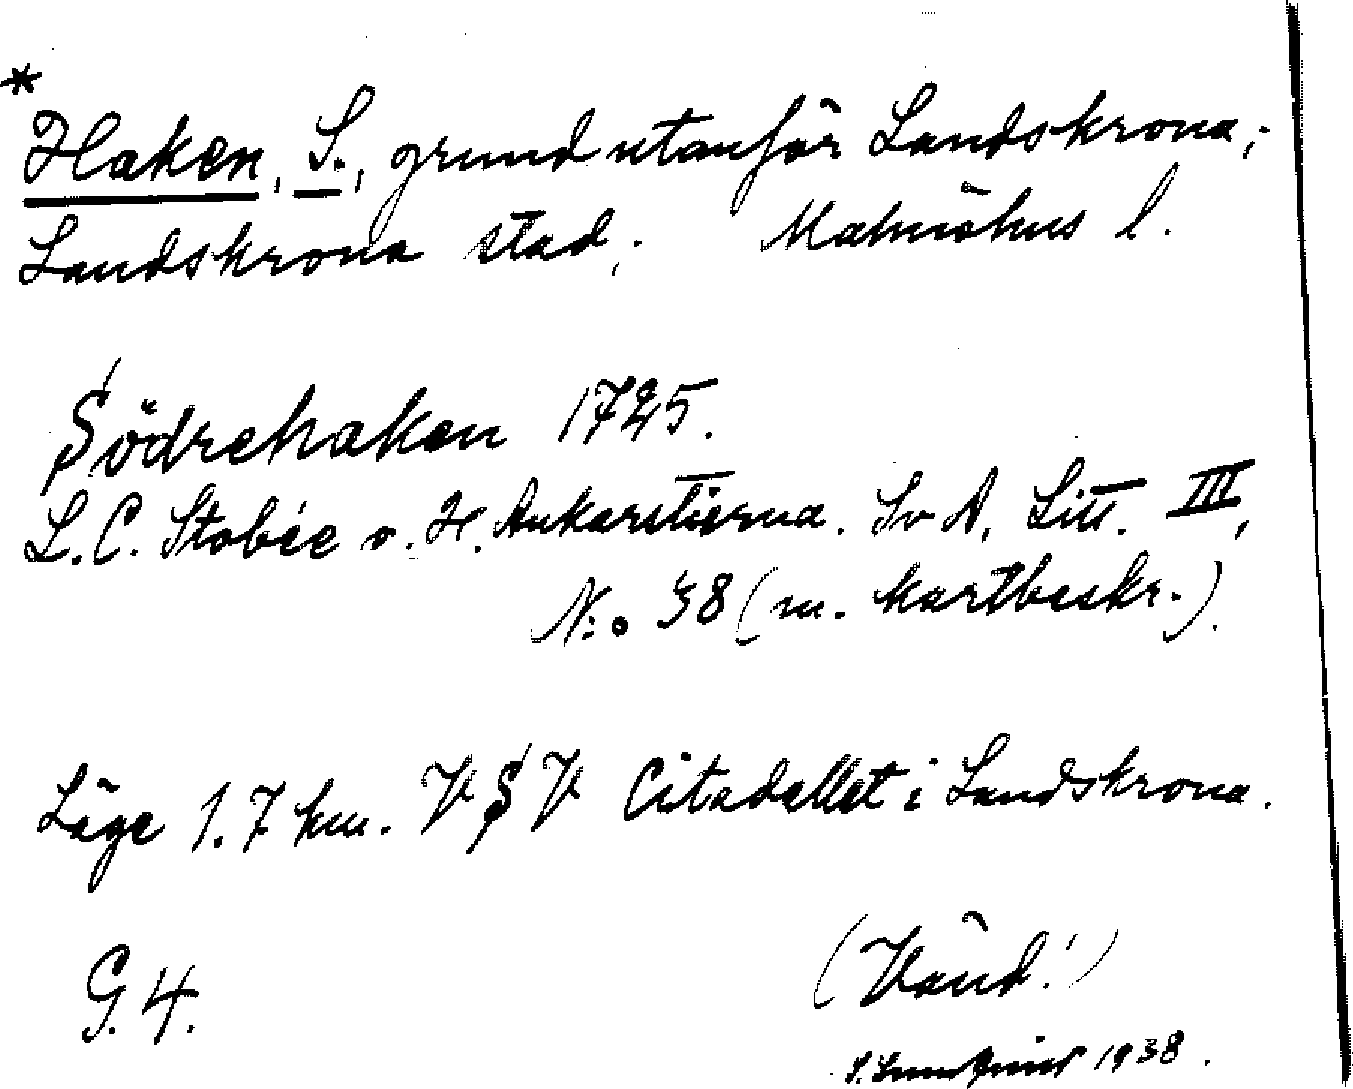 *
Haken, S., grund utanför Landskrona,;
Landskrona stad,. Malmöhus l.
Södrehaken 1725.
L. C. Stobée o. H. Ankarstierna. Sv A. Litt. III,
N:o 38 (m. kartbeskr.).
Läge 1.7 km. VSV Citadellet i Landskrona.
G. 4.
(Vänd!)
1938.